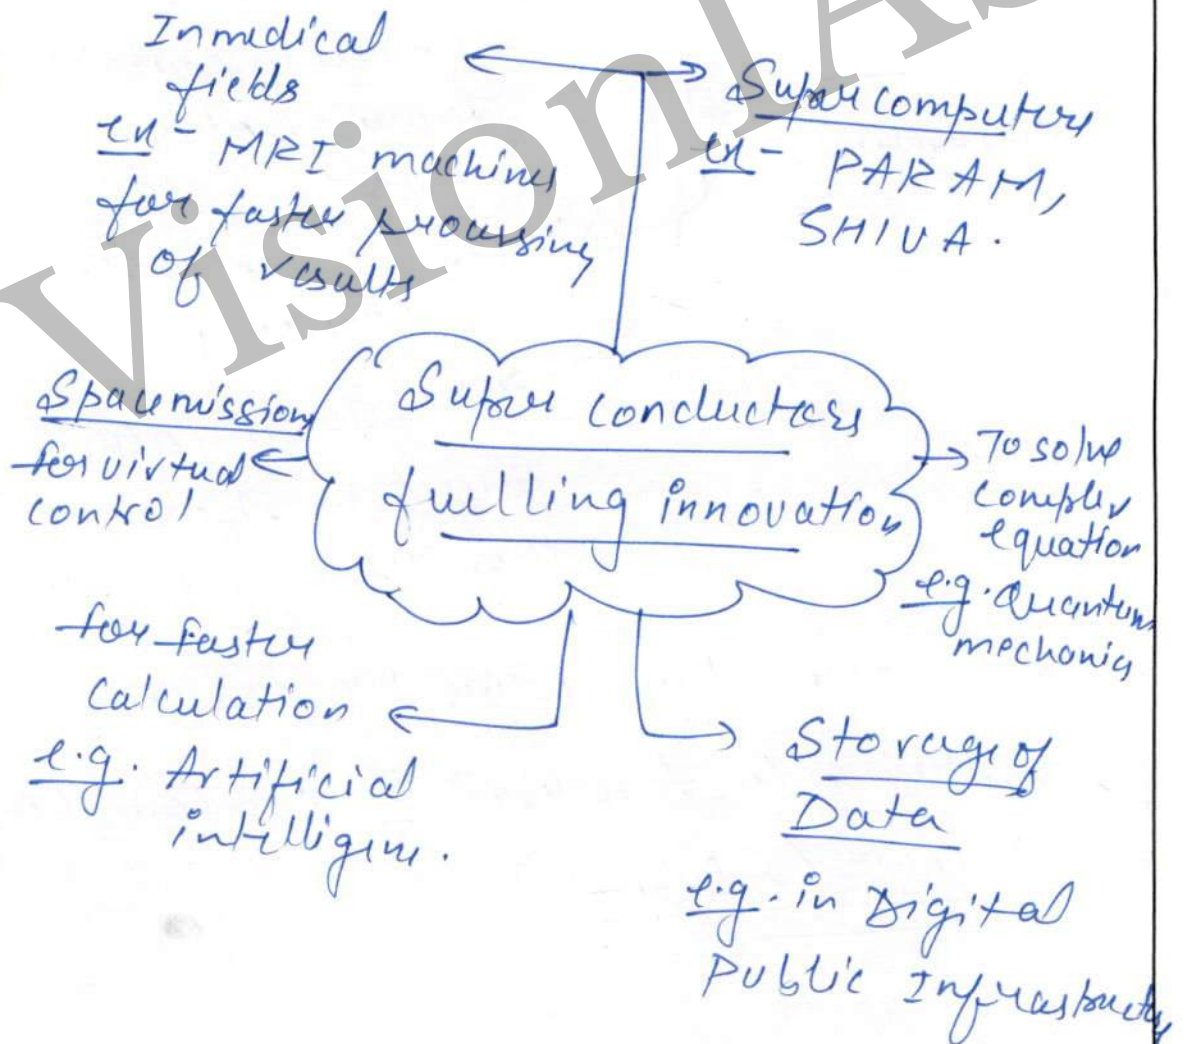 In medical
fields
ex- MRI machines
for faster processing
of results
Super computers
ex- PARAM,
SHIVA.
Space mission
for virtual
control
Super conductors
fuelling innovation
To solve
complex
equation
e.g. Quantum
mechanics
for faster
Calculation
e.g. Artificial
intelligence.
Storage of
Data
e.g. in Digital
Public Infrastructure
VisionIAS